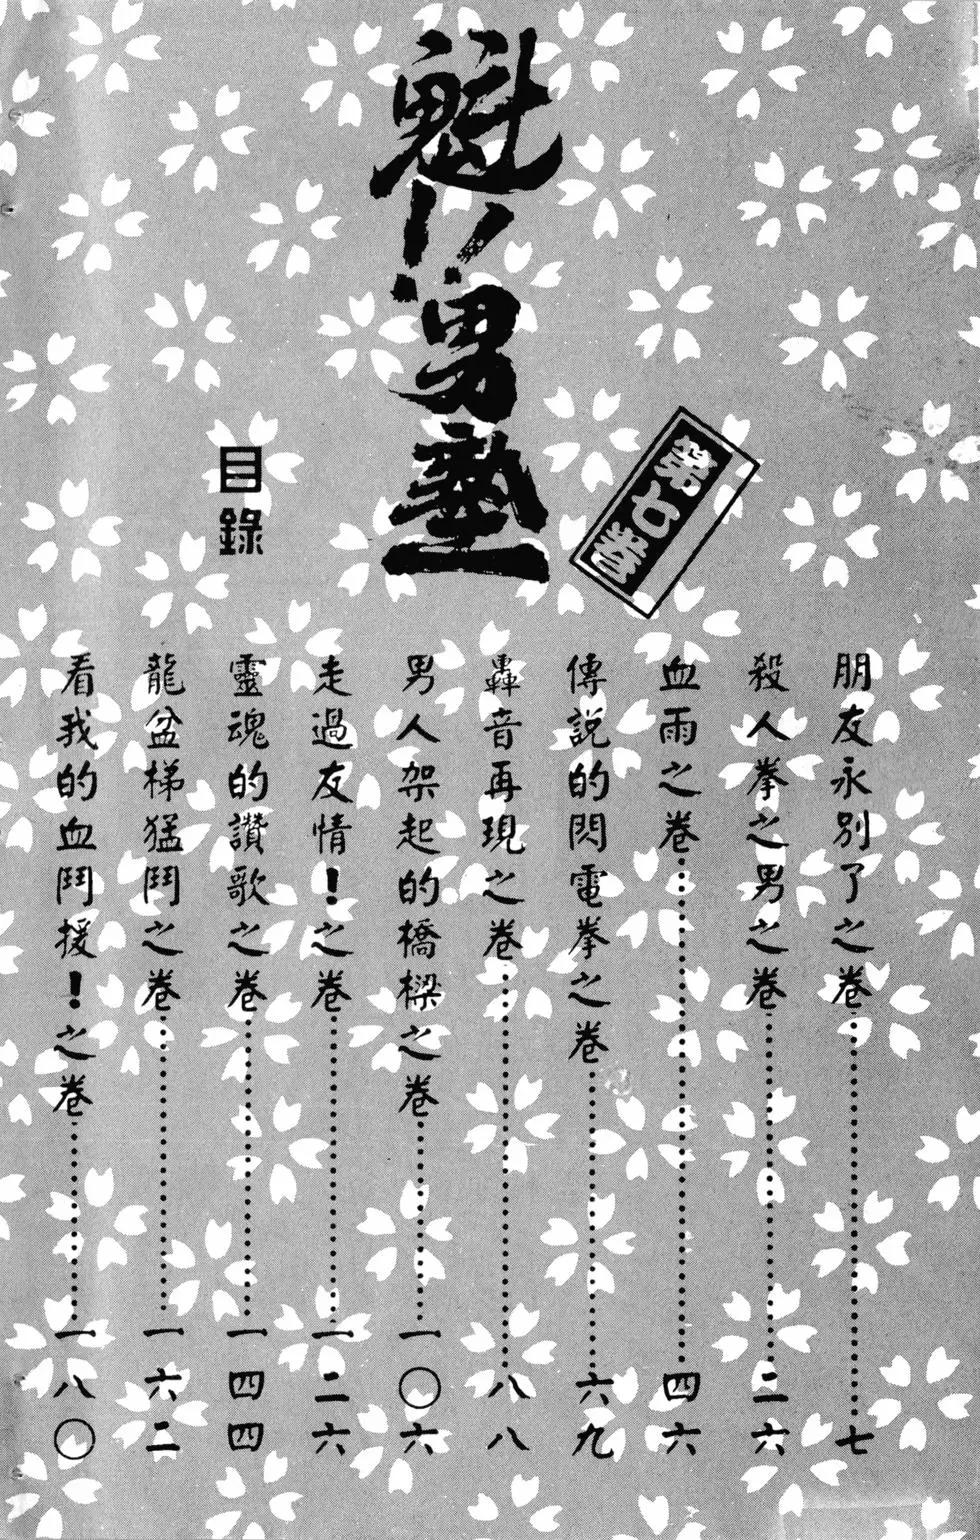 魁!!男塾
第七卷
目錄
朋友永別了之卷……七
殺人拳之男之卷……二六
血雨之卷……四六
傳說的閃電拳之卷……六九
轟音再現之卷……八八
男人架起的橋樑之卷……一〇六
走過友情!之卷……一二六
靈魂的讚歌之卷……一四四
龍盆梯猛鬥之卷……一六二
看我的血鬥援!之卷……一八〇